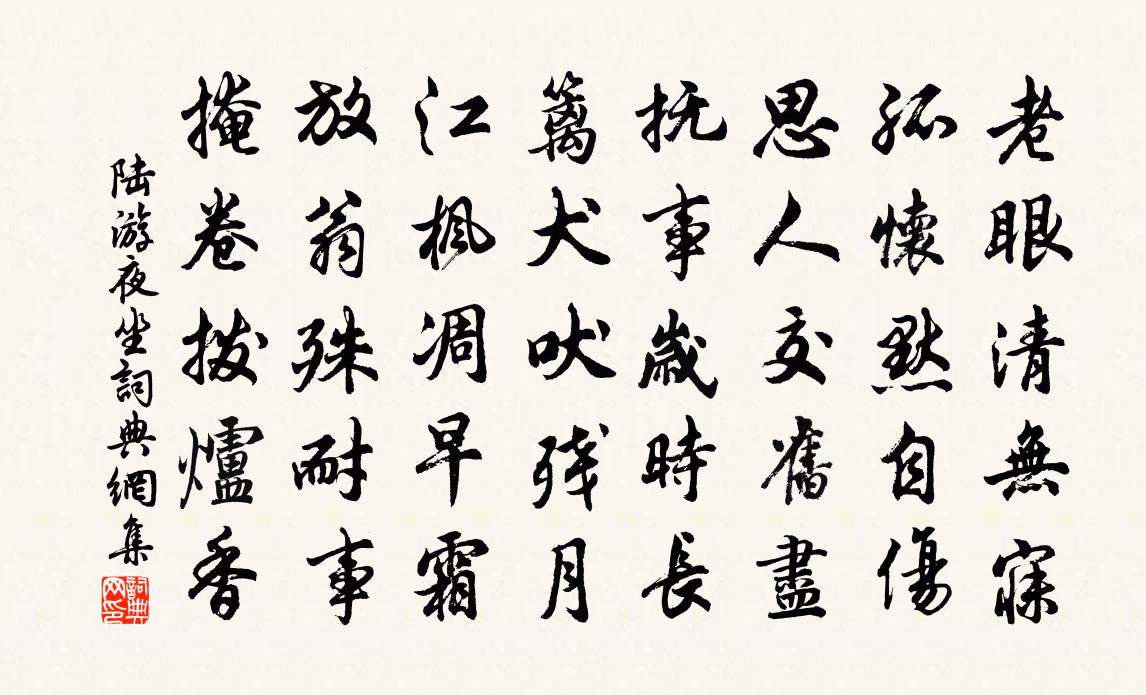 老眼清無寐
孤懷黙自傷
思人交舊盡
抚事歲時長
籬犬吠残月
江楓凋早霜
放翁殊耐事
掩卷拨爐香
陆游夜坐詞典網集